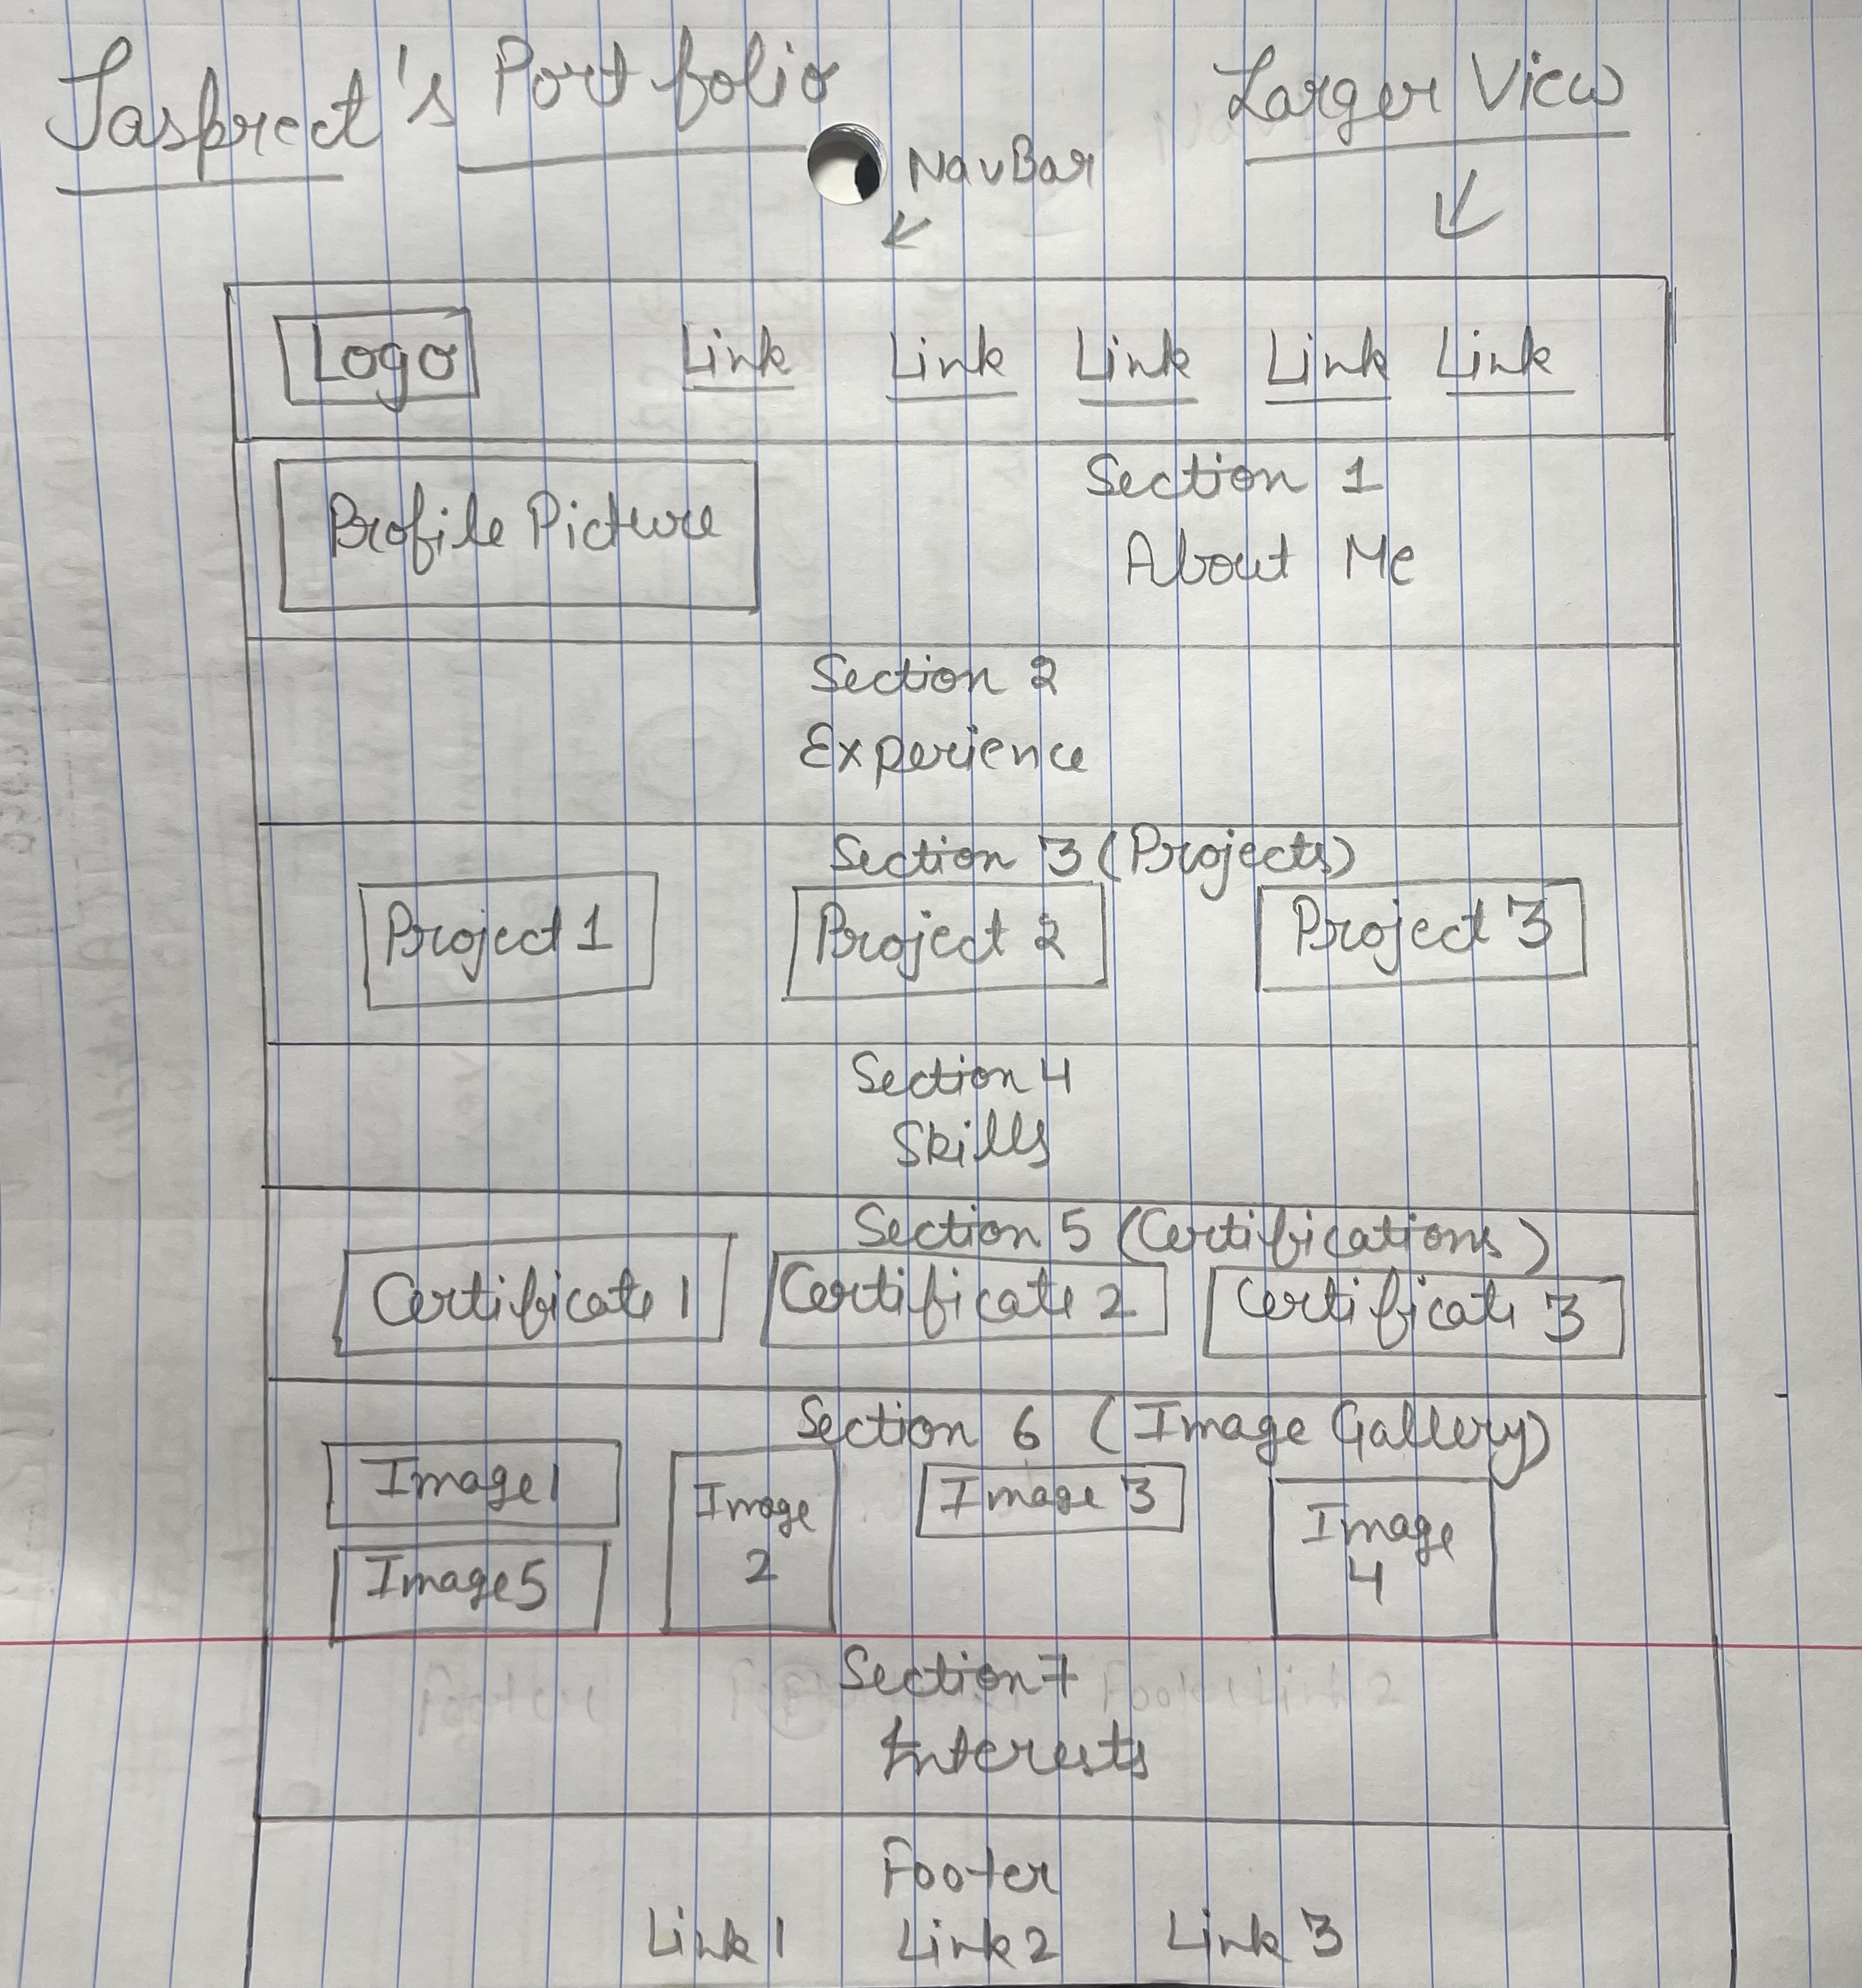 Jaspreet's Portfolio
Larger View
NavBar
Logo Link Link Link Link Link
Profile Picture
Section 1
About Me
Section 2
Experience
Section 3 (Projects)
Project 1 Project 2 Project 3
Section 4
Skills
Section 5 (Certifications)
Certificate 1 Certificate 2 Certificate 3
Section 6 (Image Gallery)
Image 1
Image
2
Image 3
Image
4
Image 5
Section 7
Interests
Footer
Link 1 Link 2 Link 3